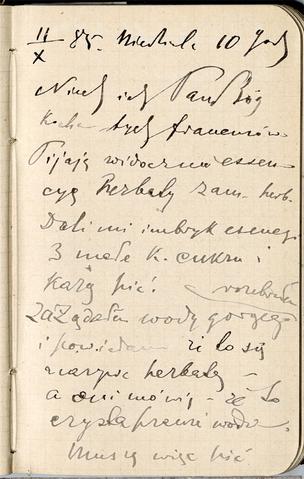 11/X 85. Niedziela 10 godz
Niech ich Pan Bóg
kocha tych francuzów
Pijają widocznie essen-
cyę herbaty zam. herb.
Dali mi imbryk esencyi
3 małe k. cukru i
każą pić!
Zażądałem wody gorącej
i powiedam że to się
nazywa herbata -
a oni mówią - że to
czysta prawie woda.
Muszę więc pić